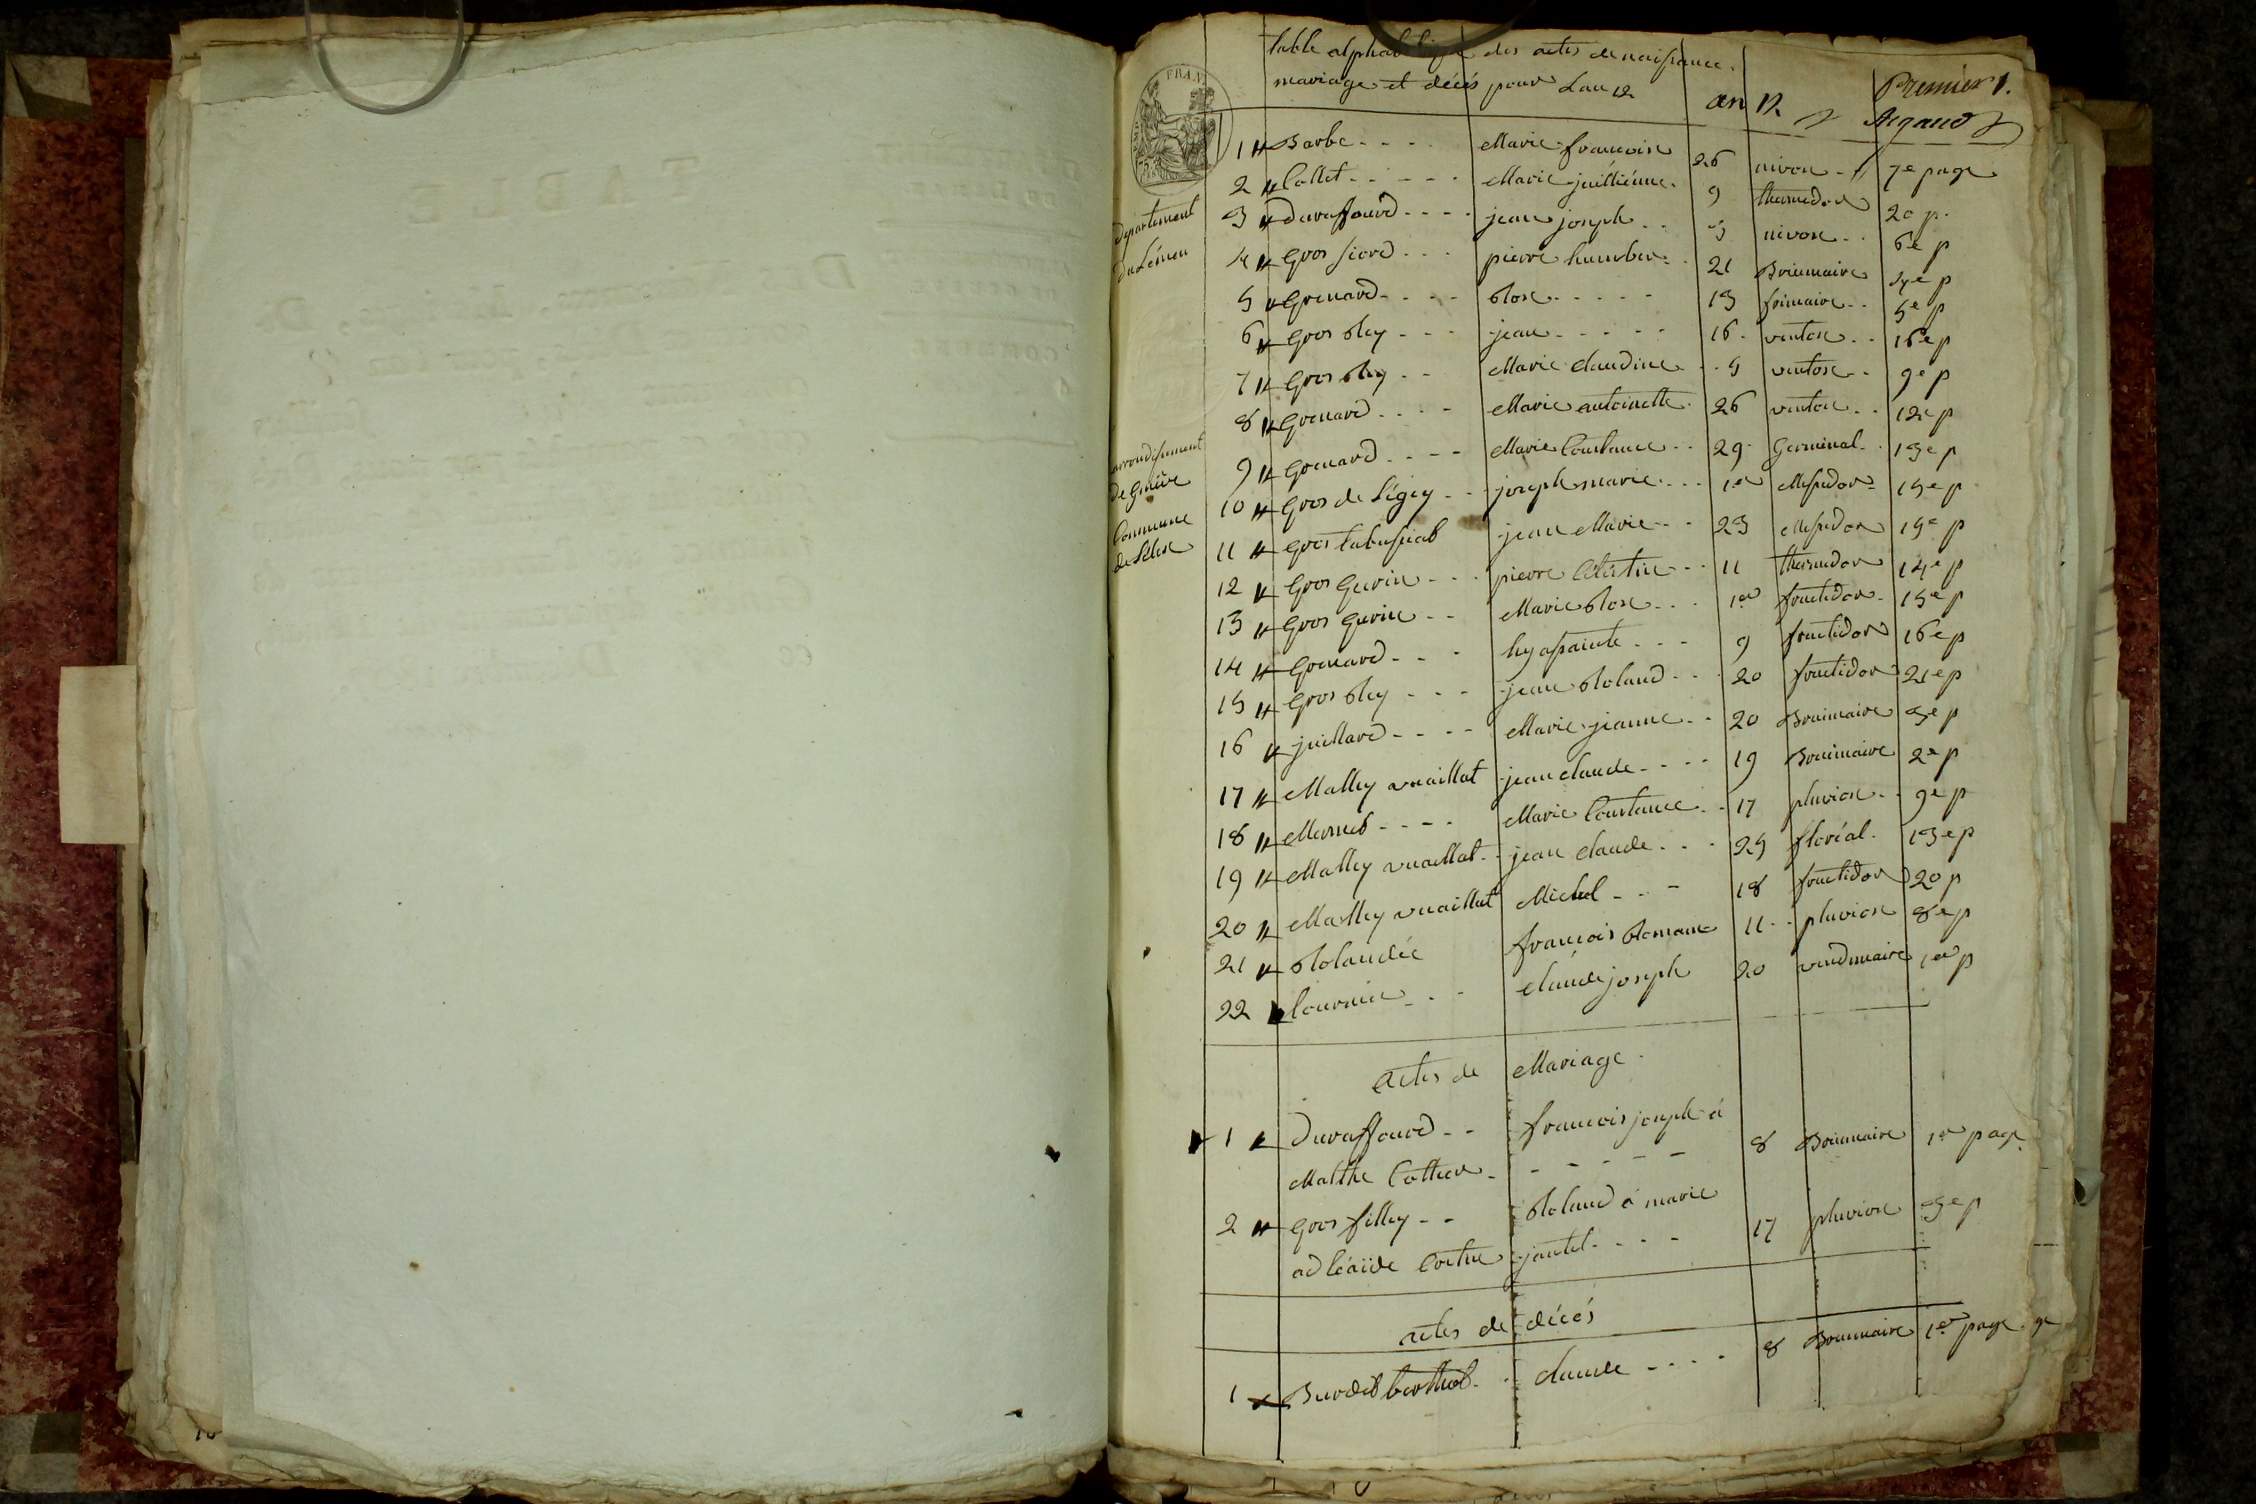 table alphabétique des actes de naissance
mariage et décés pour Lan 12
an 12
Premier 1.
Departement
du Léman
arrondissement
De Genêve
Commune
de Lélex
1 Barbe - - - - Marie francoise 26 nivose - 7e page
2 Collet - - - - - Marie juilliénne 9 thermidor 20 p.
3 Duraffourd - - - - jean joseph - - 5 nivose - - 6e p
4 Gros fiord - - - pierre humber 21 Brumaire 4e p
5 Grenard - - - - Rose - - - - - 13 frimaire - - 5e p
6 Gros Rey - - - jean - - - - - 16 ventose - - 16e p
7 Gros Rey - - Marie Claudine - - 9 ventose - - 9e p
8 Grenard - - - - Marie antoinette 26 ventose - - 12e p
9 Grenard - - - - Marie Constance - - 29 Germinal - - 13e p
10 Gros de Légiey - - joseph marie - - - 1er Messidor 15e p
11 Gros jean Marie - - 23 Messidor 15e p
12 Gros Gurin - - - pierre Célestin - - 11 thermidor 14e p
13 Gros Gurin - - Marie Rose - - - 1er fructidor - 15e p
14 Grenard - - - hyassainte - - - 9 fructidor 16e p
15 Gros Rey - - - jean Roland - - - 20 fructidor 21e p
16 juillard - - - - Marie jeanne - - 20 Brumaire 3e p
17 Malley vuaillat jean claude - - - - 19 Brumaire 2e p
18 Mermet - - - - Marie Constance - - 17 pluviose - - 9e p
19 Malley vuaillat - jean claude - - - 25 floréal - 13e p
20 Malley vuaillat Michel - - - 18 fructidor 20 p
21 Rolandée francois Romane 11 - - pluviose 8e p
22 - - - Claude joseph 20 vendmiaire 1er p
Actes de Mariage
1 Duraffourd - - francois joseph á
Malthe - - - - - - 8 Brumaire 1er page
2 Gros filley - - Roland á marie
adléaide jantet - - - - 17 pluviose 3e p
actes de décés
1 Burdet berthet - - Claude - - - - 8 Brumaire 1er page